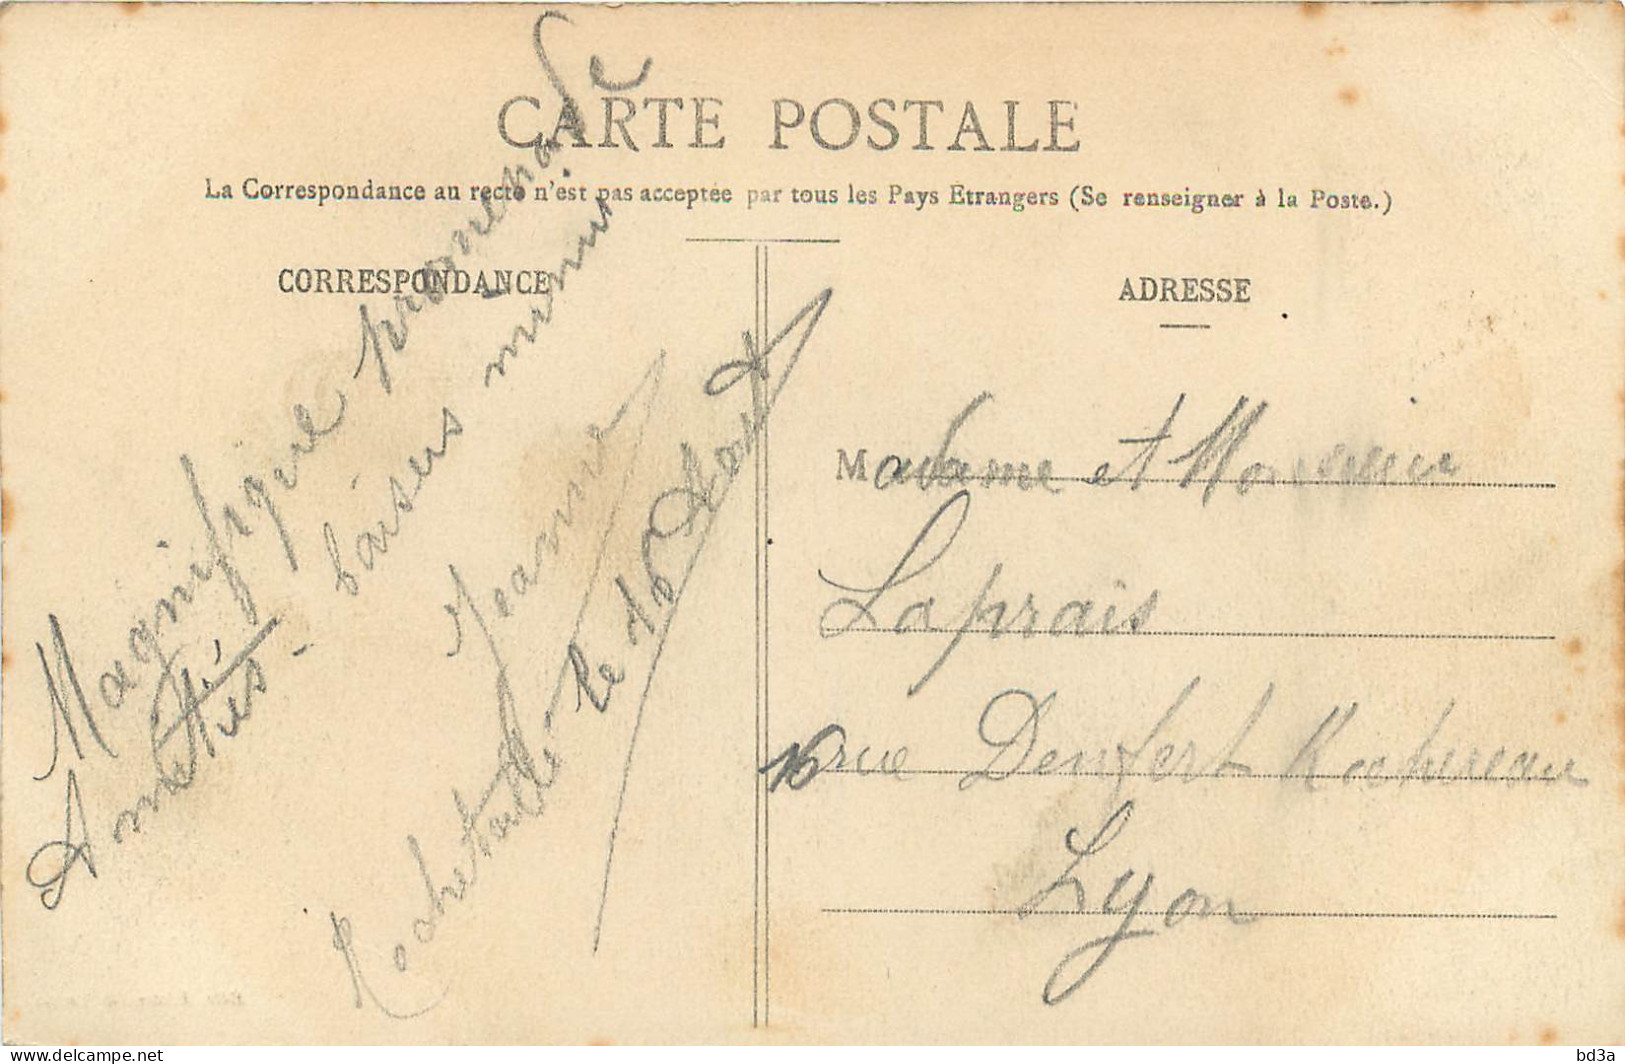 CARTE POSTALE
La Correspondance au recto n'est pas acceptée par tous les Pays Etrangers (Se renseigner à la Poste.)
CORRESPONDANCE
Magnifique promenade
Amitiés - baisers mimis
Jeanne
Rochetaillée le 16 Aout
ADRESSE
Madame et Monsieur
Laprais
16 rue Denfert Rochereau
Lyon
delcampe.net
bd3a